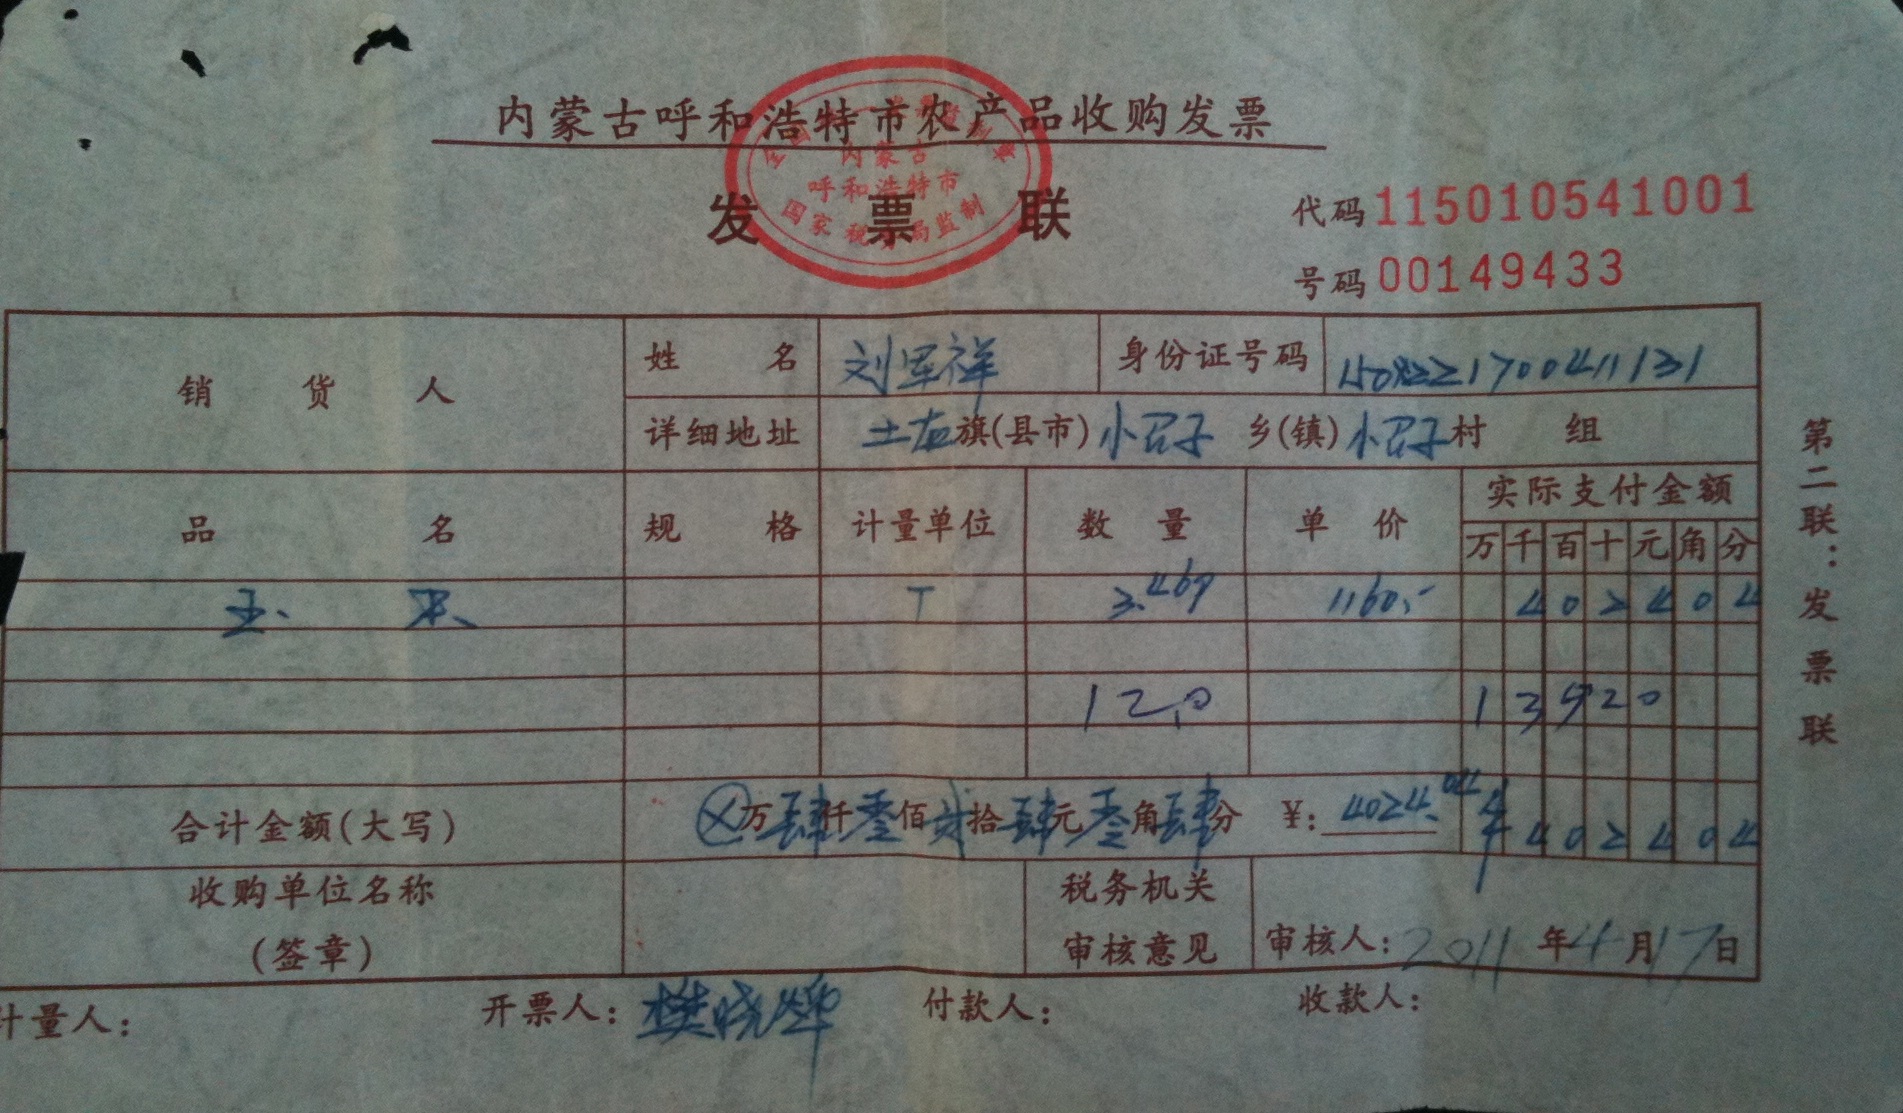 内蒙古呼和浩特市农产品收购发票
内蒙古
呼和浩特市
国家税务局监制
发票联
代码 115010541001
号码 00149433
销货人 姓名 刘军祥 身份证号码
详细地址 土右旗(县市) 小召子 乡(镇) 小召子村 组
品名 规格 计量单位 数量 单价 实际支付金额
万 千 百 十 元 角 分
玉米 T 3.469 1160.- 4 0 2 4 0 4
12.0 1 3 9 2 0
合计金额(大写) ⊗万肆仟零佰贰拾肆元零角肆分 ¥: 4024.04 ¥ 4 0 2 4 0 4
收购单位名称
(签章)
税务机关
审核意见
审核人: 2011年4月17日
计量人: 开票人: 樊晓烨 付款人: 收款人:
第二联:发票联